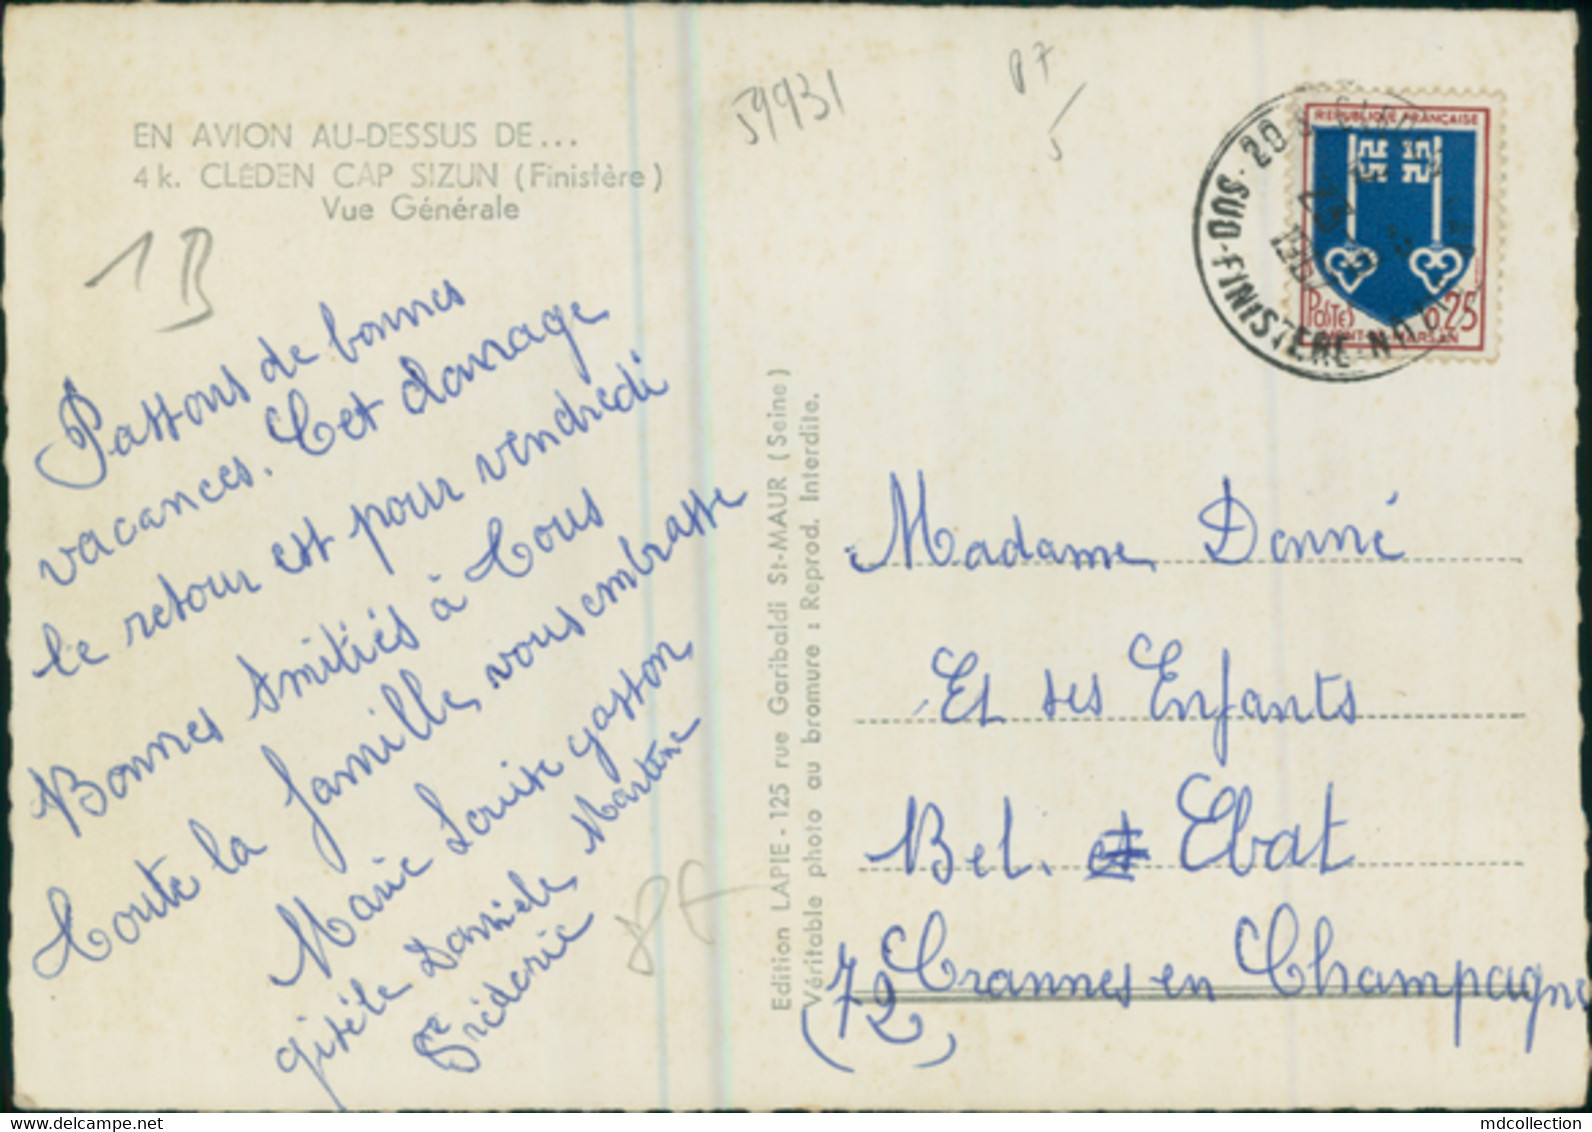 EN AVION AU-DESSUS DE...
4 k. CLÉDEN CAP SIZUN (Finistère)
Vue Générale
1B
59931
07
5
Passons de bonnes
vacances. Cet domage
le retour est pour vendredi
Bonnes Amitiés à tous
toute la famille, vous embrasse
Marie Louise gaston
gisèle Danièle, Martine
Fréderic
Edition LAPIE - 125 rue Garibaldi St-MAUR (Seine)
Véritable photo au bromure : Reprod. Interdite.
REPUBLIQUE FRANÇAISE
POSTES 0,25
MONT-DE-MARSAN
SUD-FINISTERE-NORD
Madame Donné
Et ses Enfants
Bel. Ebat
Crannes en Champagne
(72)
mdcollection